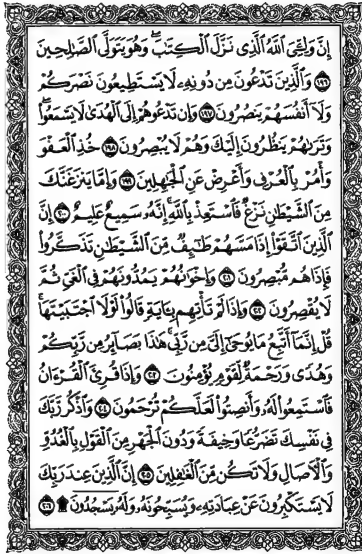 إِنَّ وَلِـِّۧىَ ٱللَّهُ ٱلَّذِى نَزَّلَ ٱلْكِتَٰبَ ۖ وَهُوَ يَتَوَلَّى ٱلصَّٰلِحِينَ
﴿١٩٦﴾ وَٱلَّذِينَ تَدْعُونَ مِن دُونِهِۦ لَا يَسْتَطِيعُونَ نَصْرَكُمْ
وَلَآ أَنفُسَهُمْ يَنصُرُونَ ﴿١٩٧﴾ وَإِن تَدْعُوهُمْ إِلَى ٱلْهُدَىٰ لَا يَسْمَعُوا۟ ۖ
وَتَرَىٰهُمْ يَنظُرُونَ إِلَيْكَ وَهُمْ لَا يُبْصِرُونَ ﴿١٩٨﴾ خُذِ ٱلْعَفْوَ
وَأْمُرْ بِٱلْعُرْفِ وَأَعْرِضْ عَنِ ٱلْجَٰهِلِينَ ﴿١٩٩﴾ وَإِمَّا يَنزَغَنَّكَ
مِنَ ٱلشَّيْطَٰنِ نَزْغٌ فَٱسْتَعِذْ بِٱللَّهِ ۚ إِنَّهُۥ سَمِيعٌ عَلِيمٌ ﴿٢٠٠﴾ إِنَّ
ٱلَّذِينَ ٱتَّقَوْا۟ إِذَا مَسَّهُمْ طَٰٓئِفٌ مِّنَ ٱلشَّيْطَٰنِ تَذَكَّرُوا۟
فَإِذَا هُم مُّبْصِرُونَ ﴿٢٠١﴾ وَإِخْوَٰنُهُمْ يَمُدُّونَهُمْ فِى ٱلْغَىِّ ثُمَّ
لَا يُقْصِرُونَ ﴿٢٠٢﴾ وَإِذَا لَمْ تَأْتِهِم بِـَٔايَةٍ قَالُوا۟ لَوْلَا ٱجْتَبَيْتَهَا ۚ
قُلْ إِنَّمَآ أَتَّبِعُ مَا يُوحَىٰٓ إِلَىَّ مِن رَّبِّى ۚ هَٰذَا بَصَآئِرُ مِن رَّبِّكُمْ
وَهُدًى وَرَحْمَةٌ لِّقَوْمٍ يُؤْمِنُونَ ﴿٢٠٣﴾ وَإِذَا قُرِئَ ٱلْقُرْءَانُ
فَٱسْتَمِعُوا۟ لَهُۥ وَأَنصِتُوا۟ لَعَلَّكُمْ تُرْحَمُونَ ﴿٢٠٤﴾ وَٱذْكُر رَّبَّكَ
فِى نَفْسِكَ تَضَرُّعًا وَخِيفَةً وَدُونَ ٱلْجَهْرِ مِنَ ٱلْقَوْلِ بِٱلْغُدُوِّ
وَٱلْـَٔاصَالِ وَلَا تَكُن مِّنَ ٱلْغَٰفِلِينَ ﴿٢٠٥﴾ إِنَّ ٱلَّذِينَ عِندَ رَبِّكَ
لَا يَسْتَكْبِرُونَ عَنْ عِبَادَتِهِۦ وَيُسَبِّحُونَهُۥ وَلَهُۥ يَسْجُدُونَ ۩ ﴿٢٠٦﴾